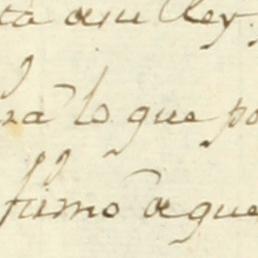 ta a su Rey
ra lo que po
firmo aque